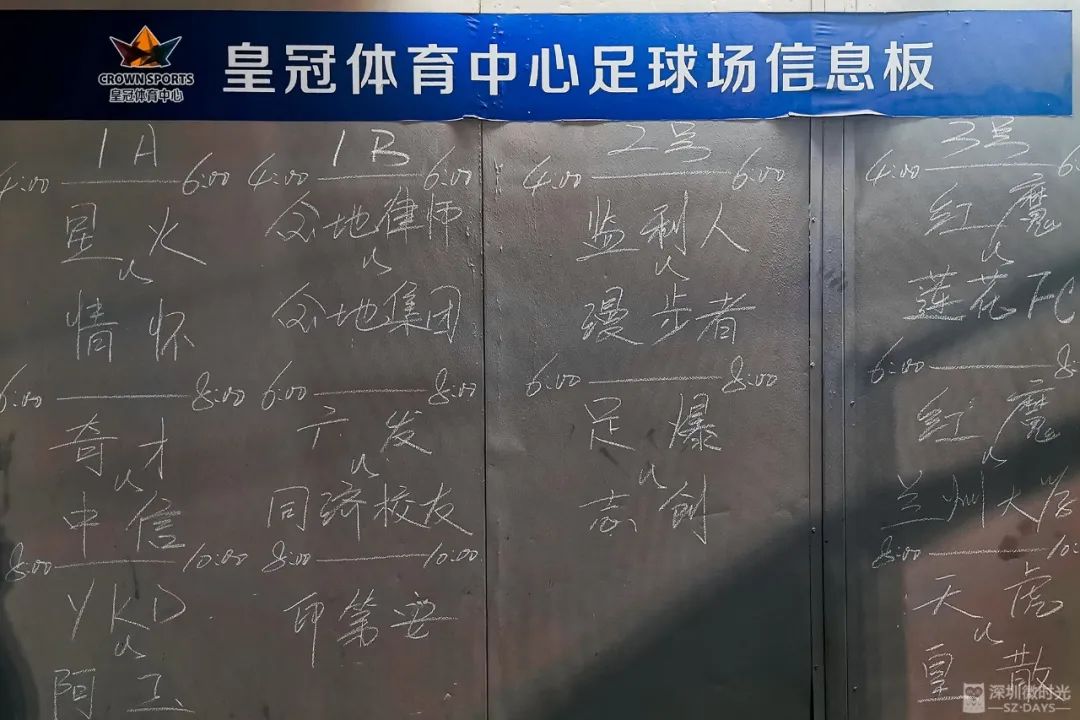 CROWN SPORTS
皇冠体育中心
皇冠体育中心足球场信息板
1A
4:00 — 6:00
星火
vs
情怀
6:00 — 8:00
奇才
vs
中信
8:00 — 10:00
YKD
vs
阿工
1B
4:00 — 6:00
众地律师
vs
众地集团
6:00 — 8:00
六发
vs
同济校友
8:00 — 10:00
印第安
2号
4:00 — 6:00
监利人
vs
漫步者
6:00 — 8:00
足爆
vs
志创
3号
4:00 — 6
红魔
vs
莲花FC
6:00 — 8:
红魔
vs
兰州大学
8:00 — 10:
天虎
vs
皇散
深圳微时光
SZ·DAYS